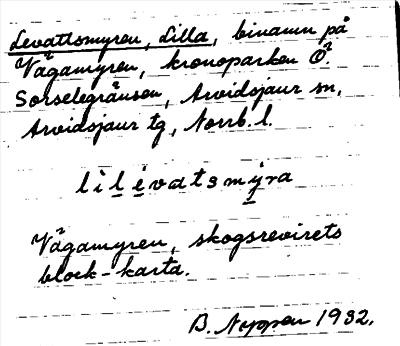 Levattsmyren, Lilla, binamn på
Vågamyren, kronoparken Ö.
Sorselegränsen, Arvidsjaur sn,
Arvidsjaur tg, Norrb. l.
lìlévatsmýra
Vågamyren, skogsrevirets
block-karta.
B. 1932.